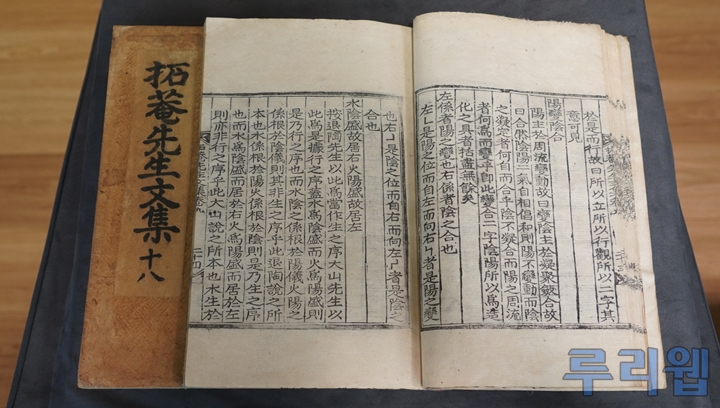 拓菴先生文集 十八
於是而行故曰所以立所以行觀所以二字其
意可見
陽變陰合
陽主於周流變動故曰變陰主於凝聚翕合故
曰合然陰陽二氣自相倡和則陽不變動而陰
之凝定者何自而合乎陰不凝合而陽之周流
者何爲而變乎卽此變合二字陰陽所以爲造
化之具者盡無餘矣
左係者陽之變也右係者陰之合也
左是陽之位而自左而向右者是陽之變
也右是陰之位而自右而向左者是陰之
合也
水陰盛故居右火陽盛故居左
按退陶先生以此爲當作生之序大山先生以
此爲是據行之序蓋水爲陰盛而火爲陽盛則
是乃行之序也而水陰之係根於陽儀火陽之
係根於陰儀則其非生之序乎此退陶說之所
本也水係根於陽火係根於陰則是乃生之序
也而水爲陰盛而居於右火爲陽盛而居於左
則亦非行之序乎此大山說之所本也水生於
루리웹